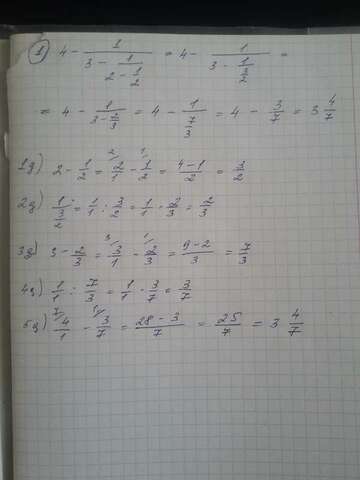 1) 4 - 1/(3 - 1/(2 - 1/2)) = 4 - 1/(3 - 1/(3/2)) =
= 4 - 1/(3 - 2/3) = 4 - 1/(7/3) = 4 - 3/7 = 3 4/7
1д) 2 - 1/2 = 2/1 - 1/2 = (4-1)/2 = 3/2
2д) 1/(3/2) = 1/1 : 3/2 = 1/1 · 2/3 = 2/3
3д) 3 - 2/3 = 3/1 - 2/3 = (9-2)/3 = 7/3
4д) 1/1 : 7/3 = 1/1 · 3/7 = 3/7
5д) 4/1 - 3/7 = (28 - 3)/7 = 25/7 = 3 4/7